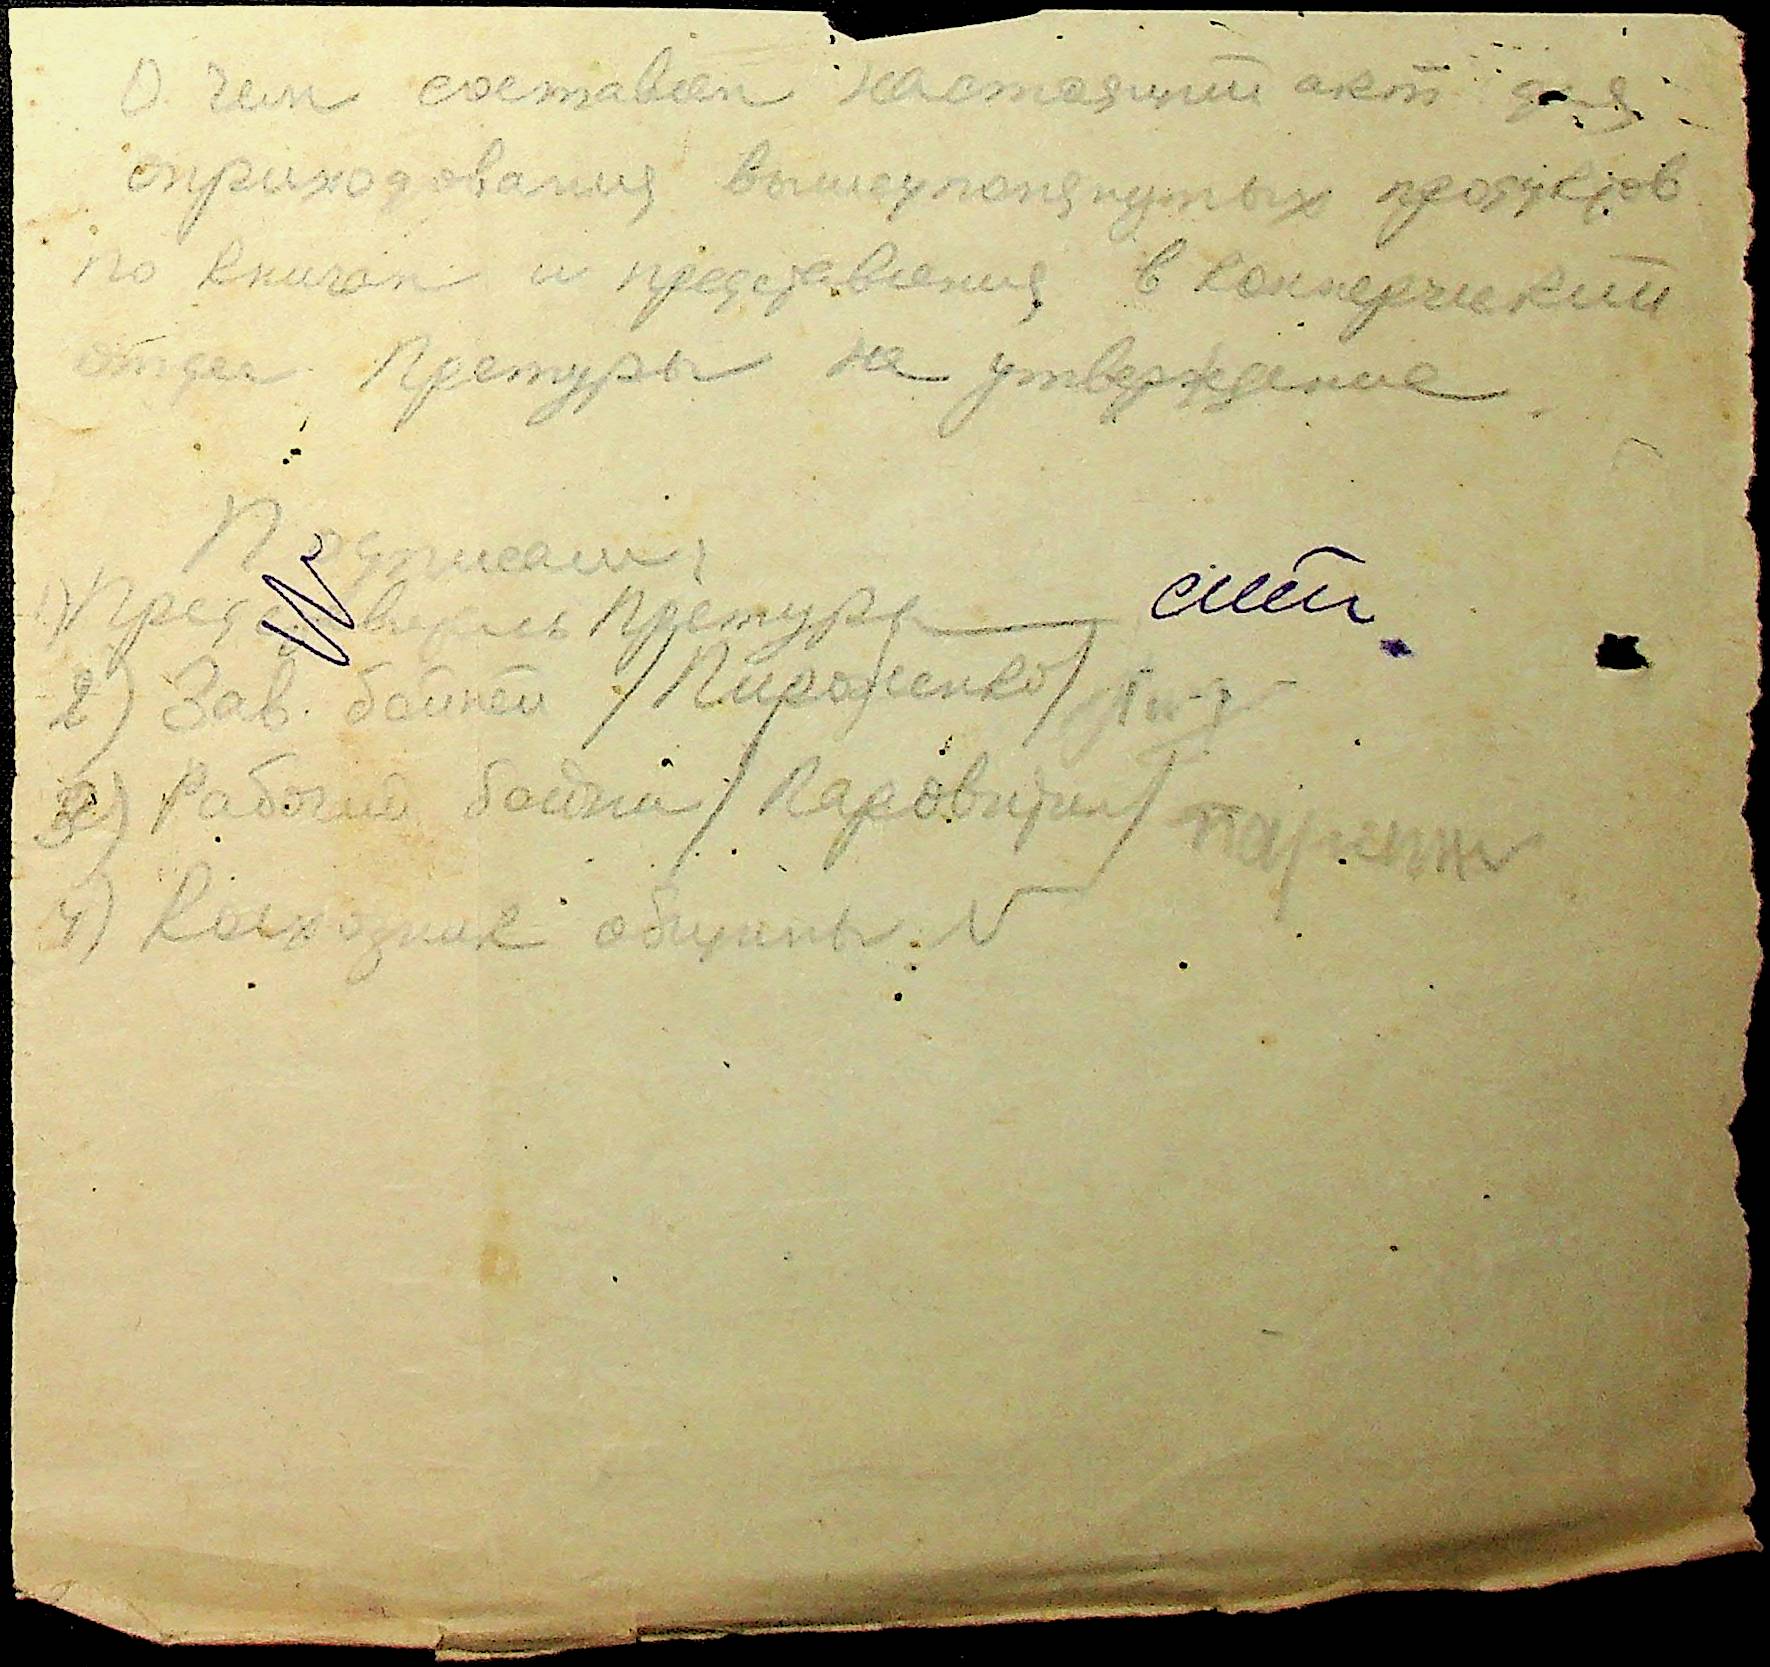 О чем составлен настоящий акт для
оприходования вышеупомянутых продуктов
по книгам и представления в коммерческий
отдел Претуры на утверждение.
Подписали:
1) Представитель Претуры
2) Зав. бойней /Пироженко/
3) Рабочий бойни /
4) Колхозник общины